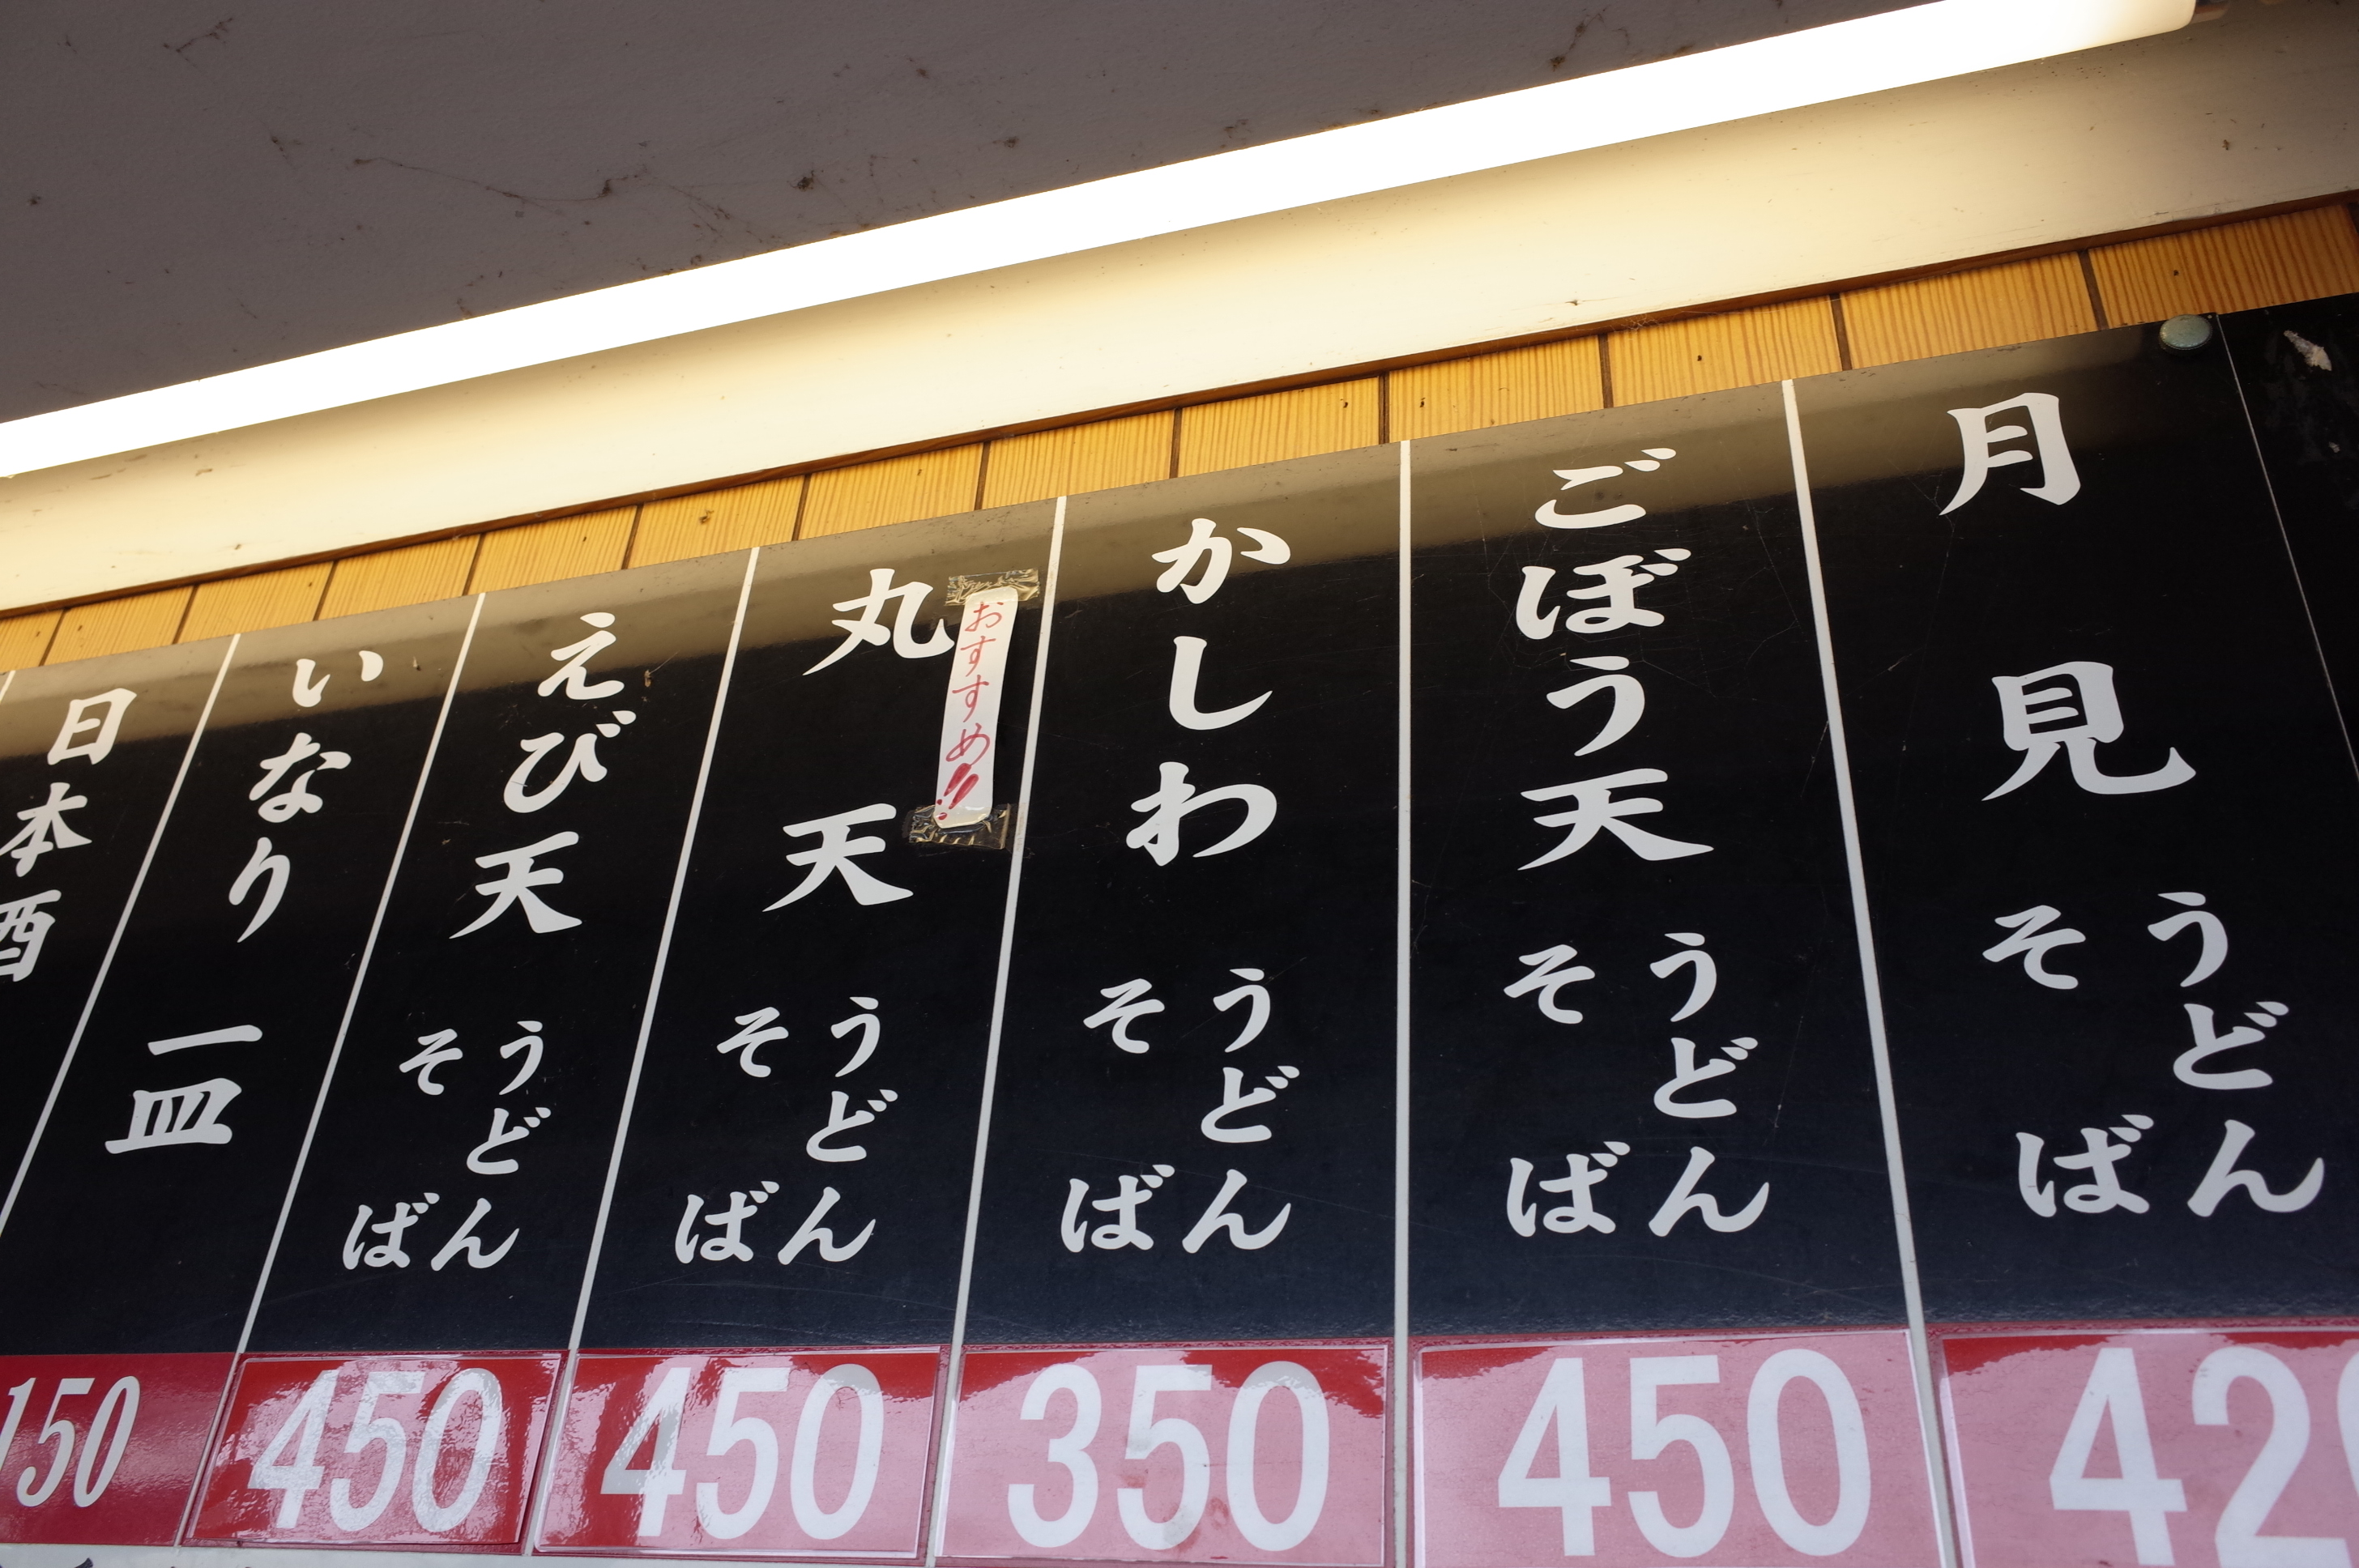 月見
うどん
そば
420
ごぼう天
うどん
そば
450
かしわ
うどん
そば
350
おすすめ!!
丸天
うどん
そば
450
えび天
うどん
そば
450
いなり 一皿
150
日本酒